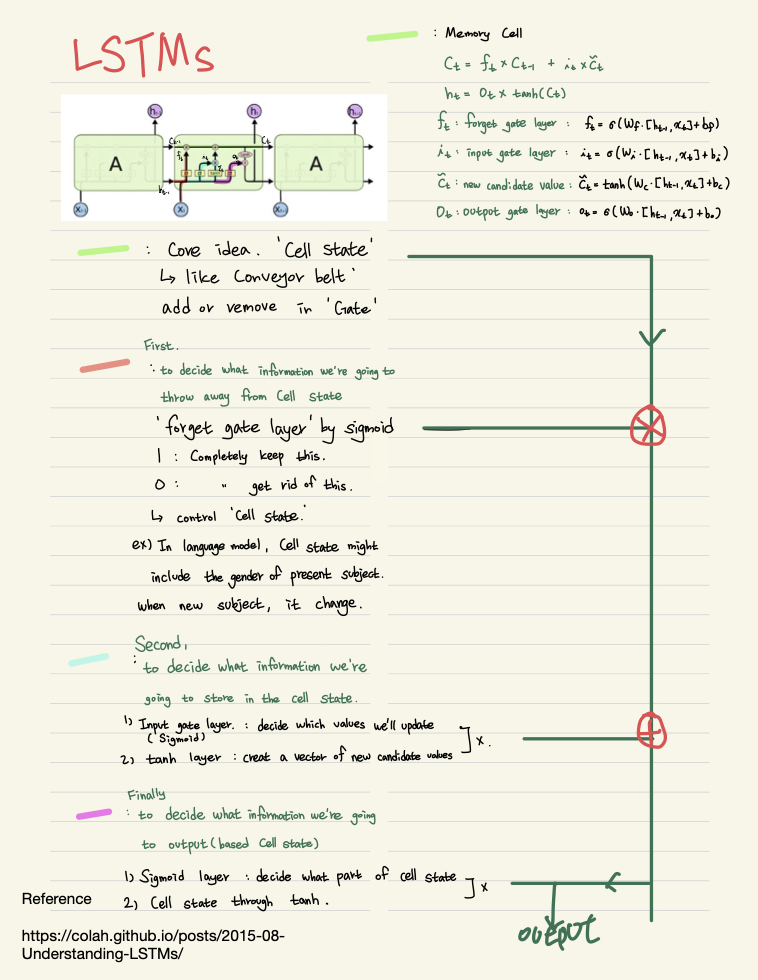 LSTMs
: Memory Cell
Ct = ft × Ct-1 + it × C̃t
ht = Ot × tanh(Ct)
ft : forget gate layer : ft = σ(Wf·[ht-1, xt]+bf)
it : input gate layer : it = σ(Wi·[ht-1, xt]+bi)
C̃t : new candidate value : C̃t = tanh(Wc·[ht-1, xt]+bc)
Ot : output gate layer : ot = σ(Wo·[ht-1, xt]+bo)
A
A
: Core idea. 'Cell state'
↳ like Conveyor belt'
add or remove in 'Gate'
First.
: to decide what information we're going to
throw away from Cell state
'forget gate layer' by sigmoid
1 : Completely keep this.
0 : " get rid of this.
↳ control 'Cell state.'
ex) In language model, Cell state might
include the gender of present subject.
when new subject, it change.
Second,
: to decide what information we're
going to store in the cell state.
1) Input gate layer. : decide which values we'll update
(Sigmoid)
] ×.
2) tanh layer : creat a vector of new candidate values
Finally
: to decide what information we're going
to output (based Cell state)
1) Sigmoid layer : decide what part of cell state
] ×
2) Cell state through tanh.
output
Reference
https://colah.github.io/posts/2015-08-
Understanding-LSTMs/